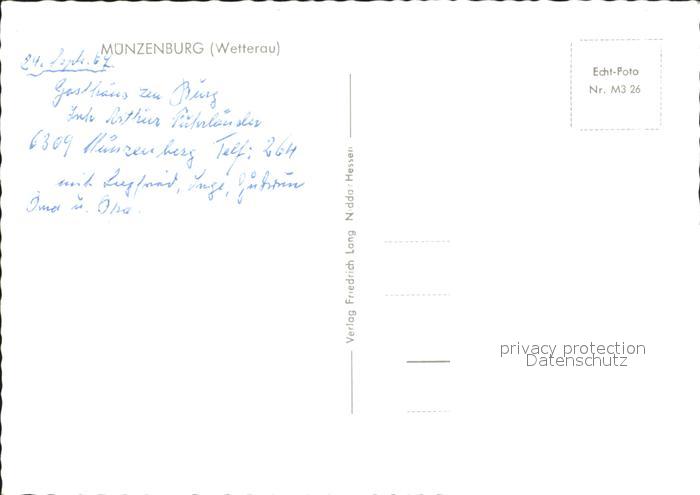 MÜNZENBURG (Wetterau)
24. Sept. 67.
Gasthaus zur Burg
Inh. Arthur Führländer
6309 Münzenberg Telf: 264
mit Siegfried, Inge, Gudrun
Oma u. Opa.
Verlag Friedrich Lang Nidda-Hessen
Echt-Foto
Nr. M3 26
privacy protection
Datenschutz